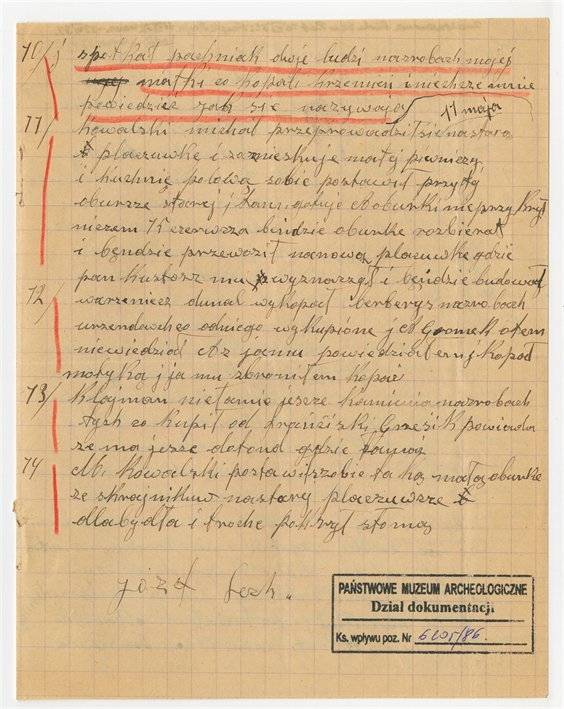 10/ spotkał pachniak dwje ludzi nazrobach mojej
matki co kopali krzemień i niechcze mnie
powiedzieć jak sie nazywają
11 maja
11/ kowalski michał przeprowadziłsie nastarą
placuwkę i zamieskuje małyj piwniczy
i kuchnię polową sobie postawił przytyj
oburze starej i tam gotuje A oburki nie przykrył
niczem 15 czerwcza bendzie oburke rozbierał
i bęndzie przewoził nanową placuwkę gdzie
pan kustosz mu wyznarzył i bęndzie budował
12/ warzeniecz dunal wykopał berberys nazrobach
urzendach co odniego wykupione j co Gromek otem
niewiedział Az jamu powiedziałem i kopał
motyką i ja mu zbroniłem kopać
13/ Klajman nie łamie jesze kamienia nazrobach
tych co kupił od frańciszki Gresik powiada
ze ma jesze dotond gdzie łamać
14/ M. Kowalski postawiszobie taką małą oburke
ze skrajnikuw nastary placuwsze
dlabydła i troche pokrył słomą
józef Lech.
PAŃSTWOWE MUZEUM ARCHEOLOGICZNE
Dział dokumentacji
Ks. wpływu poz. Nr 6205/86.